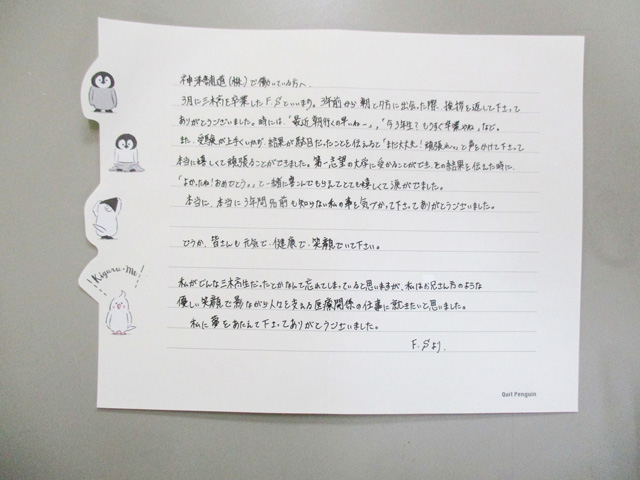 神津製作所(株)で働いている方へ
3月に三木高を卒業したF.Sといいます。3年前から朝と夕方に出会った際、挨拶を返して下さって
ありがとうございました。時には、「最近朝行くの早いねー」、「今3年生?もうすぐ卒業やね」など。
また、受験が上手くいかず、結果が駄目だったことを伝えると「まだ大丈夫!頑張れ」と声をかけて下さって
本当に嬉しくて頑張ることができました。第一志望の大学に受かることができ、その結果を伝えた時に、
「よかったね!おめでとう」と一緒に喜んでもらえてとても嬉しくて涙がでました。
本当に、本当に3年間名前も知らない私の事を気づかって下さってありがとうございました。
どうか、皆さんも元気で、健康で、笑顔でいて下さい。
私がどんな三木高生だったかなんて忘れてしまっていると思いますが、私はお兄さん方のような
優しい笑顔で影ながら人々を支える医療関係の仕事に就きたいと思いました。
私に夢をあたえて下さってありがとうございました。
F.Sより.
Kiguru-Me
Dart Penguin